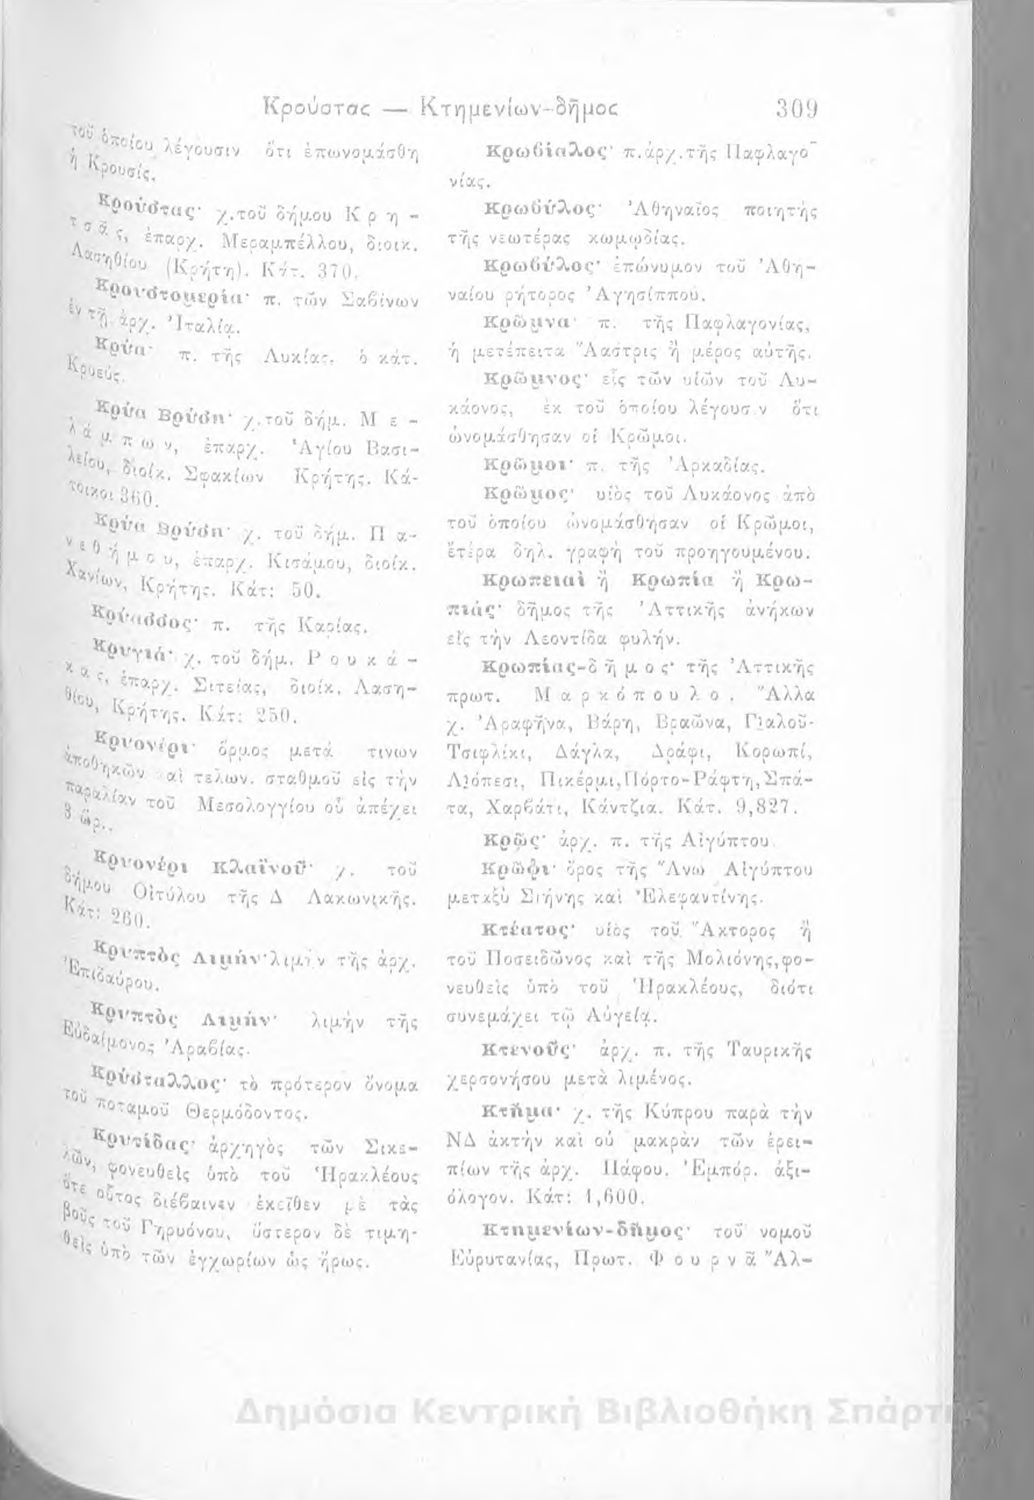 Κρούστας — Κτημενίων-δῆμος 309
τοῦ ὁποίου λέγουσιν ὅτι ἐπωνομάσθη
ἡ Κρουσίς.
Κρούστας· χ.τοῦ δήμου Κ ρ η -
τ σ ᾶ ς, ἐπαρχ. Μεραμπέλλου, διοικ.
Λασηθίου (Κρήτη). Κάτ. 370.
Κρουστομερία· π. τῶν Σαβίνων
ἐν τῇ ἀρχ. Ἰταλίᾳ.
Κρύα· π. τῆς Λυκίας, ὁ κάτ.
Κρυεύς.
Κρύα Βρύση· χ.τοῦ δήμ. Μ ε -
λ ά μ π ω ν, ἐπαρχ. Ἁγίου Βασι-
λείου, διοίκ. Σφακίων Κρήτης. Κά-
τοικοι 360.
Κρύα Βρύση· χ. τοῦ δήμ. Π α-
ν ε θ ή μ ο υ, ἐπαρχ. Κισάμου, διοίκ.
Χανίων, Κρήτης. Κάτ: 50.
Κρύασσος· π. τῆς Καρίας.
Κρυγιά· χ. τοῦ δήμ. Ρ ο υ κ ά -
κ α ς, ἐπαρχ. Σιτείας, διοίκ. Λαση-
θίου, Κρήτης. Κάτ: 250.
Κρυονέρι· ὅρμος μετά τινων
ἀποθηκῶν καὶ τελων. σταθμοῦ εἰς τὴν
παραλίαν τοῦ Μεσολογγίου οὗ ἀπέχει
3 ὥρ..
Κρυονέρι Κλαϊνοῦ· χ. τοῦ
δήμου Οἰτύλου τῆς Δ Λακωνικῆς.
Κάτ: 260.
Κρυπτὸς Λιμήν·λιμὴν τῆς ἀρχ.
Ἐπιδαύρου.
Κρυπτὸς Λιμήν· λιμὴν τῆς
Εὐδαίμονος Ἀραβίας.
Κρύσταλλος· τὸ πρότερον ὄνομα
τοῦ ποταμοῦ Θερμόδοντος.
Κρυτίδας· ἀρχηγὸς τῶν Σικε-
λῶν, φονευθεὶς ὑπὸ τοῦ Ἡρακλέους
ὅτε οὗτος διέβαινεν ἐκεῖθεν μὲ τὰς
βοῦς τοῦ Γηρυόνου, ὕστερον δὲ τιμη-
θεὶς ὑπὸ τῶν ἐγχωρίων ὡς ἥρως.
Κρωβίαλος· π.ἀρχ.τῆς Παφλαγο-
νίας.
Κρωβύλος· Ἀθηναῖος ποιητὴς
τῆς νεωτέρας κωμῳδίας.
Κρωβύλος· ἐπώνυμον τοῦ Ἀθη-
ναίου ρήτορος Ἀγησίππου.
Κρῶμνα· π. τῆς Παφλαγονίας,
ἡ μετέπειτα Ἄαστρις ἢ μέρος αὐτῆς.
Κρῶμνος· εἷς τῶν υἱῶν τοῦ Λυ-
κάονος, ἐκ τοῦ ὁποίου λέγουσιν ὅτι
ὠνομάσθησαν οἱ Κρῶμοι.
Κρῶμοι· π. τῆς Ἀρκαδίας.
Κρῶμος· υἱὸς τοῦ Λυκάονος ἀπὸ
τοῦ ὁποίου ὠνομάσθησαν οἱ Κρῶμοι,
ἑτέρα δηλ. γραφὴ τοῦ προηγουμένου.
Κρωπειαὶ ἢ Κρωπία ἢ Κρω-
πιάς· δῆμος τῆς Ἀττικῆς ἀνήκων
εἰς τὴν Λεοντίδα φυλήν.
Κρωπίας-δ ῆ μ ο ς· τῆς Ἀττικῆς
πρωτ. Μ α ρ κ ό π ο υ λ ο . Ἄλλα
χ. Ἀραφῆνα, Βάρη, Βραῶνα, Γιαλοῦ-
Τσιφλίκι, Δάγλα, Δράφι, Κορωπί,
Λιόπεσι, Πικέρμι,Πόρτο-Ράφτη,Σπά-
τα, Χαρβάτι, Κάντζια. Κάτ. 9,827.
Κρῶς· ἀρχ. π. τῆς Αἰγύπτου.
Κρῶφι· ὄρος τῆς Ἄνω Αἰγύπτου
μεταξὺ Συήνης καὶ Ἐλεφαντίνης.
Κτέατος· υἱὸς τοῦ Ἄκτορος ἢ
τοῦ Ποσειδῶνος καὶ τῆς Μολιόνης,φο-
νευθεὶς ὑπὸ τοῦ Ἡρακλέους, διότι
συνεμάχει τῷ Αὐγείᾳ.
Κτενοῦς· ἀρχ. π. τῆς Ταυρικῆς
χερσονήσου μετὰ λιμένος.
Κτῆμα· χ. τῆς Κύπρου παρὰ τὴν
ΝΔ ἀκτὴν καὶ οὐ μακρὰν τῶν ἐρει-
πίων τῆς ἀρχ. Πάφου. Ἐμπόρ. ἀξι-
όλογον. Κάτ: 1,600.
Κτημενίων-δῆμος· τοῦ νομοῦ
Εὐρυτανίας, Πρωτ. Φ ο υ ρ ν ᾶ Ἄλ-
Δημόσια Κεντρική Βιβλιοθήκη Σπάρτης